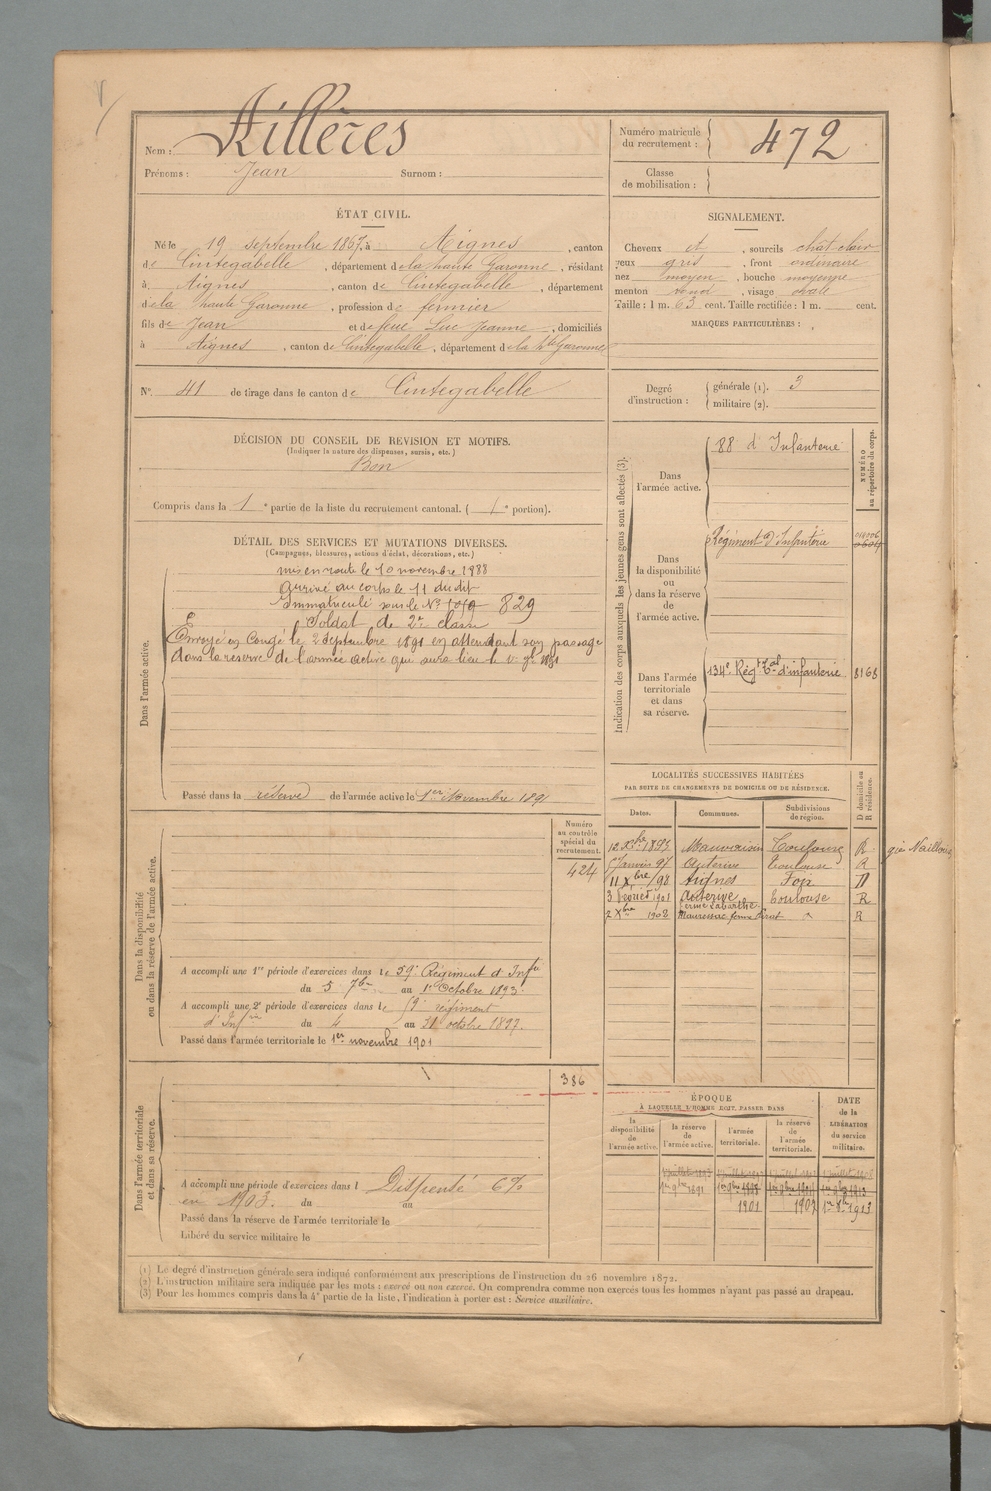 Nom : Aillères
Prénoms : Jean Surnom :
Numéro matricule du recrutement : 472
Classe de mobilisation :
ÉTAT CIVIL.
Né le 19 septembre 1867, à Aignes, canton
de Cintegabelle, département de la haute Garonne, résidant
à Aignes, canton de Cintegabelle, département
de la haute Garonne, profession de fermier
fils de Jean et de feue Luc Jeanne, domiciliés
à Aignes, canton de Cintegabelle, département de la hte Garonne
SIGNALEMENT.
Cheveux et, sourcils chat-clair
yeux gris, front ordinaire
nez moyen, bouche moyenne
menton rond, visage ovale
Taille : 1 m. 63 cent. Taille rectifiée : 1 m. cent.
MARQUES PARTICULIÈRES :
N° 41 de tirage dans le canton de Cintegabelle
Degré d'instruction : générale (1). 3
militaire (2).
DÉCISION DU CONSEIL DE REVISION ET MOTIFS.
(Indiquer la nature des dispenses, sursis, etc.)
Bon
Compris dans la 1e partie de la liste du recrutement cantonal. (1e portion).
DÉTAIL DES SERVICES ET MUTATIONS DIVERSES.
(Campagnes, blessures, actions d'éclat, décorations, etc.)
Dans l'armée active.
mis en route le 10 novembre 1888
Arrivé au corps le 11 du dit
Immatriculé sous le N° 829
Soldat de 2e classe
Envoyé en Congé le 2 septembre 1891 en attendant son passage
dans la réserve de l'armée active qui aura lieu le 1er 9bre 1891
Passé dans la réserve de l'armée active le 1er Novembre 1891
Indication des corps auxquels les jeunes gens sont affectés (3).
NUMÉRO au répertoire du corps.
Dans l'armée active.
88 d'Infanterie
Dans la disponibilité ou dans la réserve de l'armée active.
Régiment d'Infanterie
Dans l'armée territoriale et dans sa réserve.
134e Régt Tal d'infanterie 8168
LOCALITÉS SUCCESSIVES HABITÉES
PAR SUITE DE CHANGEMENTS DE DOMICILE OU DE RÉSIDENCE.
D domicile ou R résidence.
Dates. Communes. Subdivisions de région.
12 Xbre 1893 Mauvaisin Toulouse R
Janvier 97 Auterive Toulouse R
11 Xbre/98 Aignes Foix D
3 Février 1901 Auterive Toulouse R
ferme Labarthe
2 Xbre 1902 Mauressac ferme R
Dans la disponibilité ou dans la réserve de l'armée active.
Numéro au contrôle spécial du recrutement.
424
A accompli une 1re période d'exercices dans le 59e Régiment d'Infie
du 5 7bre au 1er Octobre 1893.
A accompli une 2e période d'exercices dans le 59e régiment
d'Infie du 4 au 31 octobre 1897.
Passé dans l'armée territoriale le 1er novembre 1901
Dans l'armée territoriale et dans sa réserve.
386
A accompli une période d'exercices dans l Dispensé 6%
en 1903. du au
Passé dans la réserve de l'armée territoriale le
Libéré du service militaire le
ÉPOQUE
À LAQUELLE L'HOMME DOIT PASSER DANS
la disponibilité de l'armée active.
la réserve de l'armée active.
l'armée territoriale.
la réserve de l'armée territoriale.
DATE de la LIBÉRATION du service militaire.
1er 9bre 1891
1901 1907 1913
(1) Le degré d'instruction générale sera indiqué conformément aux prescriptions de l'instruction du 26 novembre 1872.
(2) L'instruction militaire sera indiquée par les mots : exercé ou non exercé. On comprendra comme non exercés tous les hommes n'ayant pas passé au drapeau.
(3) Pour les hommes compris dans la 4e partie de la liste, l'indication à porter est : Service auxiliaire.